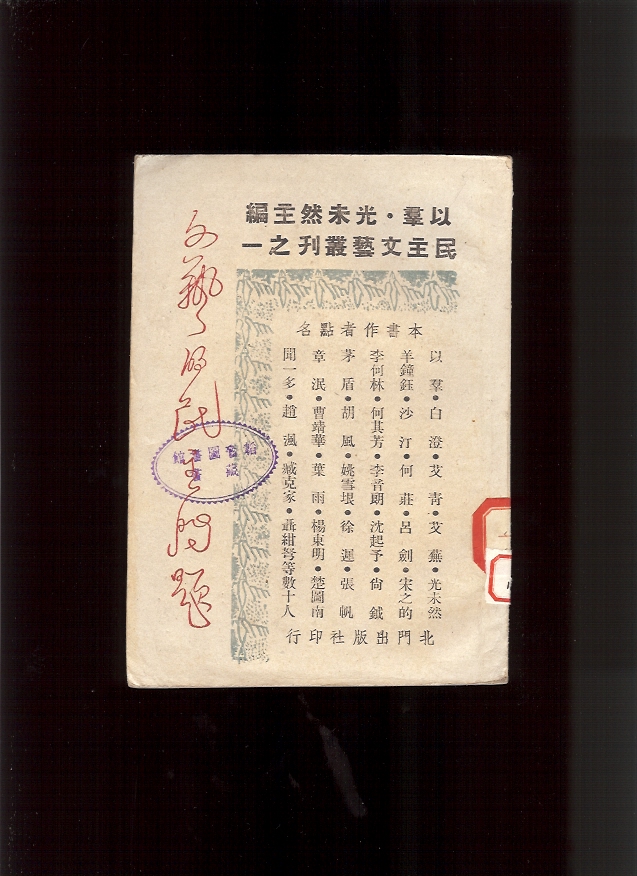 以羣・光未然主編
民主文藝叢刊之一
本書作者點名
以羣・白澄・艾青・艾蕪・光未然
羊鐘鈺・沙汀・何莊・呂劍・宋之的
李何林・何其芳・李音朗・沈起予・尙鉞
茅盾・胡風・姚雪垠・徐遲・張帆
章泯・曹靖華・葉雨・楊東明・楚圖南
聞一多・趙渢・臧克家・聶紺弩等數十人
北門出版社印行
文藝的民主問題
圖書館
藏書